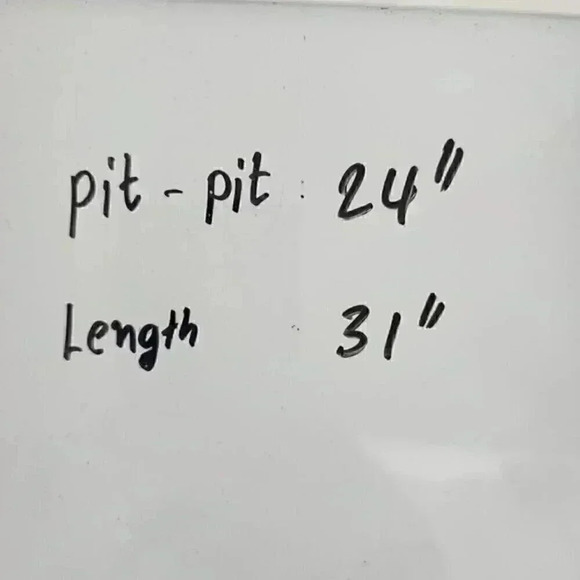 pit - pit : 24"
Length : 31"